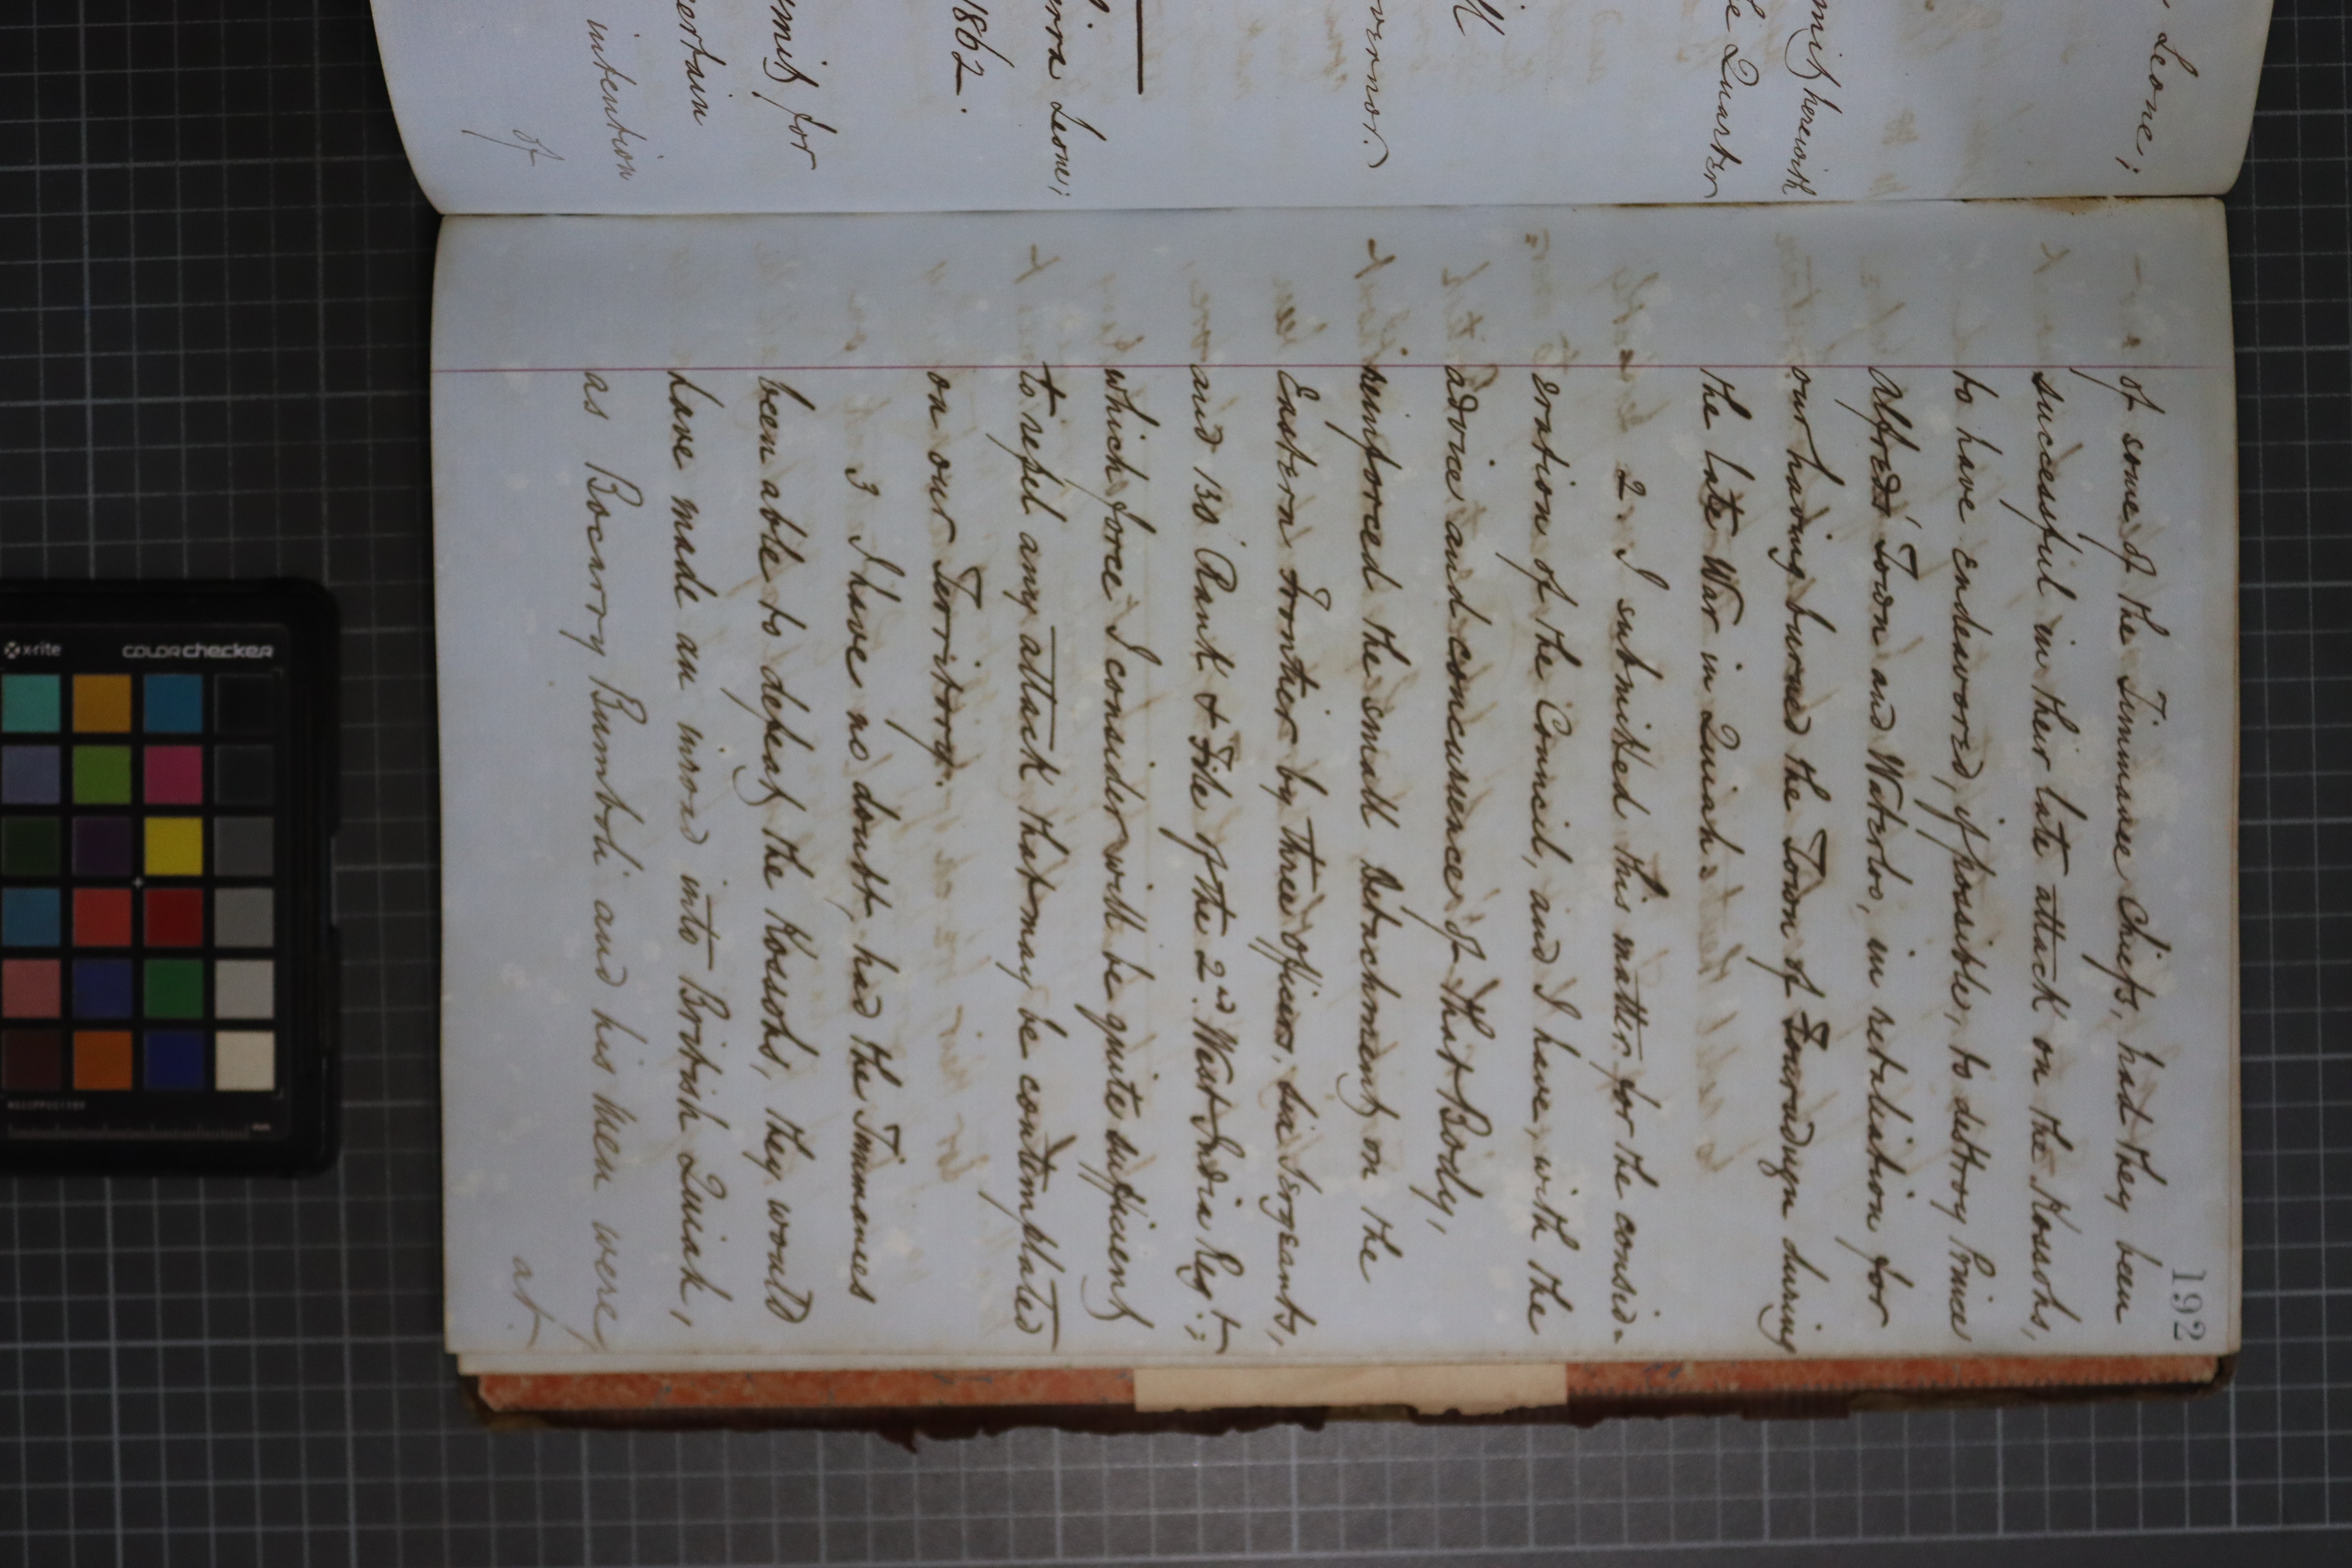 Leone;
mit herewith
Quarter
vernor.
erra Leone;
1862.
mit for
certain
intention
of
192
of some of the Timmanee Chiefs, had they been
successful in their late attack on the Kossohs,
to have endeavored, if possible, to destroy Prince
Alfred's Town and Waterloo, in retaliation for
our having burned the Town of during
the late War in Quiah.
2. I submitted this matter for the consid-
eration of the Council, and I have, with the
advice and concurrence of that Body,
reinforced the small Detachment on the
Eastern Frontier by three officers, six Sergeants,
and 130 Rank & File of the 2nd West India Regt;
which force I consider will be quite sufficient
to repel any attack that may be contemplated
on our Territory.
3 I have no doubt, had the Timmanees
been able to defeat the Kossohs, they would
have made an inroad into British Quiah,
as Bocarry Bumboli and his Men were,
at.
x-rite
colorchecker